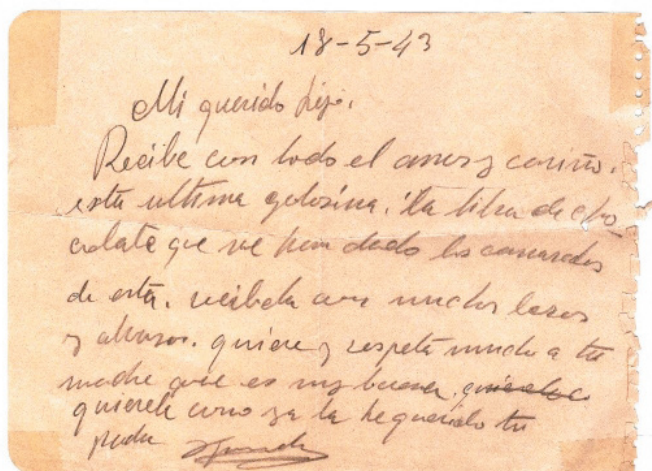 18-5-43
Mi querido hijo.
Recibe con todo el amor y cariño.
esta ultima golosina. la libra de cho
colate que me han dado los camaradas
de esta. recibela con muchos besos
y abrazos. quiere y respeta mucho a tu
madre que es muy buena.
quierele como yo la he querido tu
padre